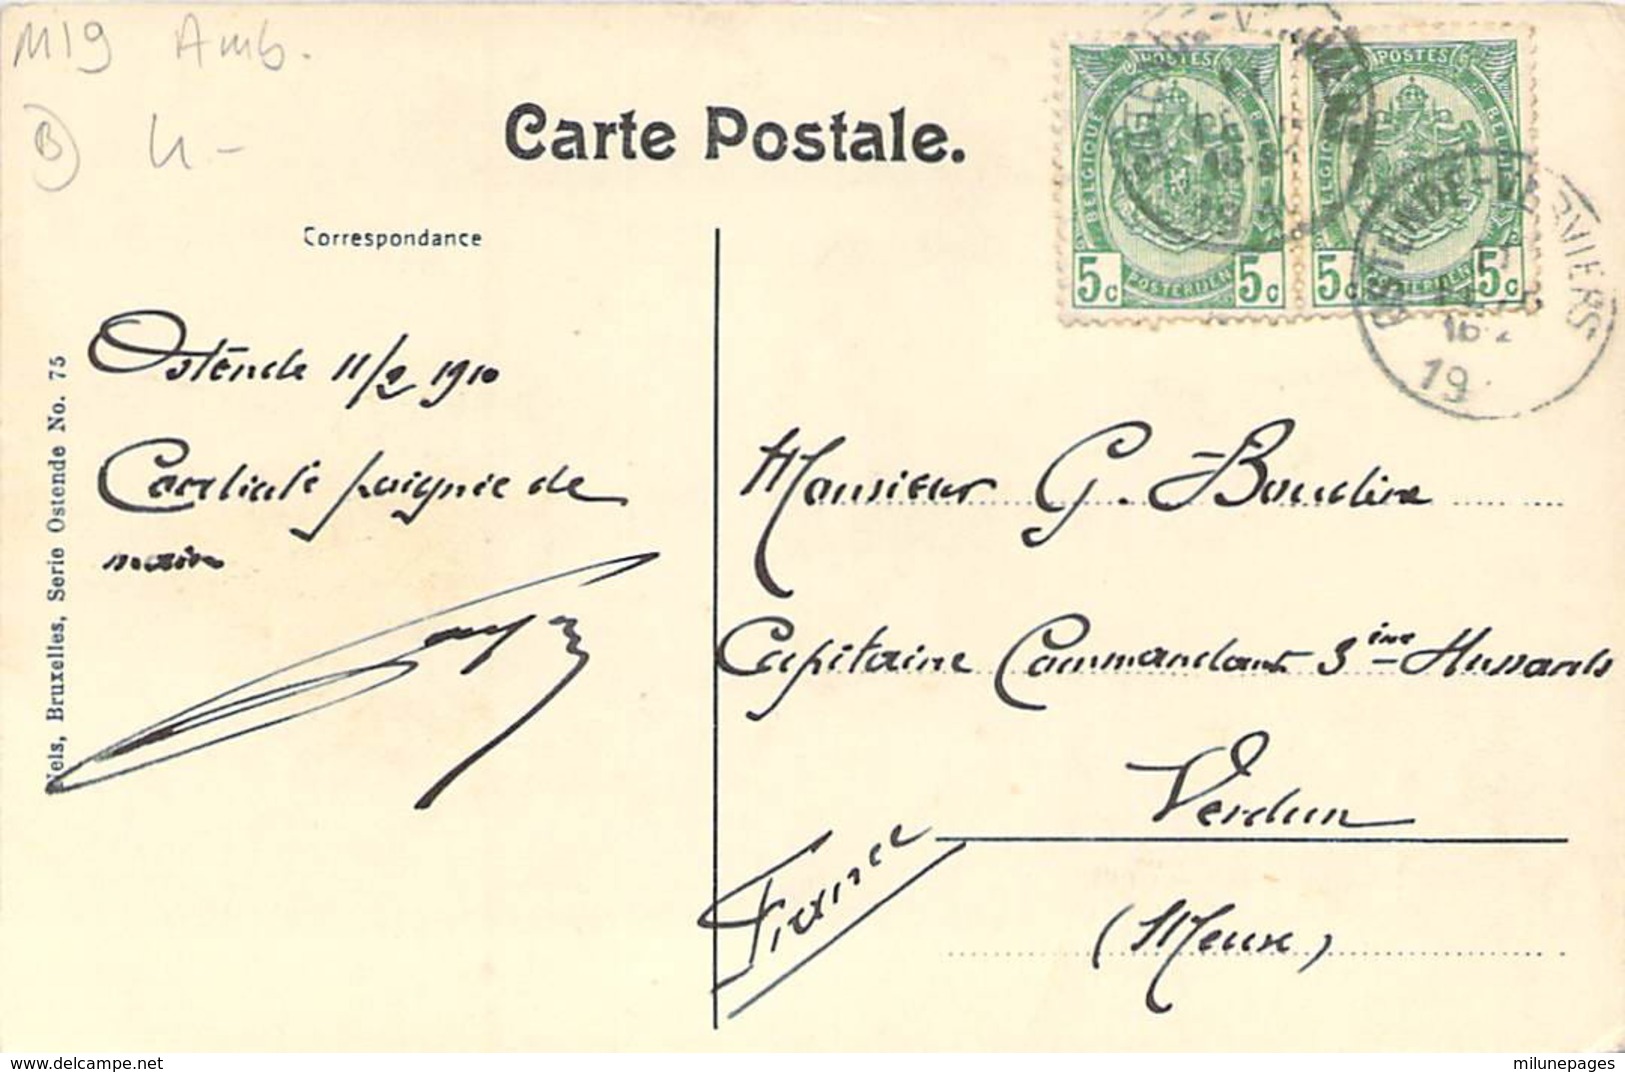 M19 Amb.
B 4-
Carte Postale.
Correspondance
POSTES
BELGIQUE
POSTERIJEN
5c 5c
POSTES
BELGIQUE BELGIE
POSTERIJEN
5c 5c
OSTENDE VERVIERS
11
16-2
19
Ostende 11/2 1910
Cordiale poignée de
main
Monsieur G. Boudine
Capitaine Commandant 3ème Hussards
Verdun
(Meuse)
France
Nels, Bruxelles, Serie Ostende No. 75
www.delcampe.net
milunepages